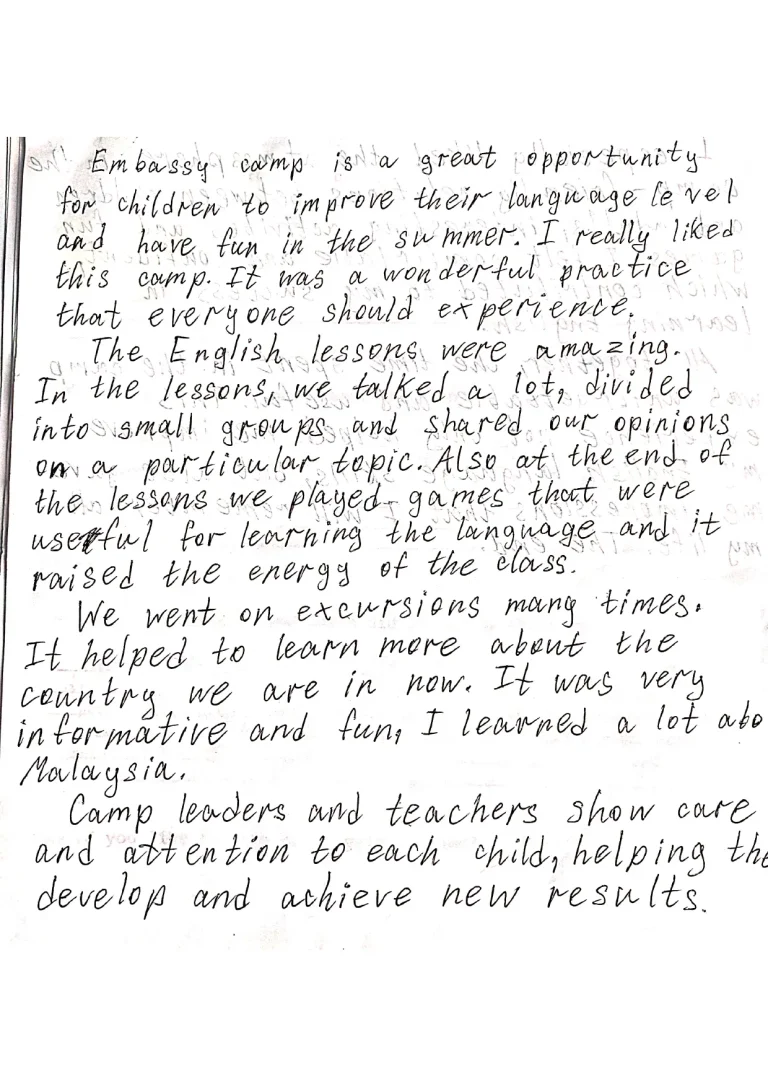 Embassy camp is a great opportunity
for children to improve their language level
and have fun in the summer. I really liked
this camp. It was a wonderful practice
that everyone should experience.
The English lessons were amazing.
In the lessons, we talked a lot, divided
into small groups and shared our opinions
on a particular topic. Also at the end of
the lessons we played games that were
useful for learning the language and it
raised the energy of the class.
We went on excursions many times.
It helped to learn more about the
country we are in now. It was very
informative and fun, I learned a lot abo
Malaysia.
Camp leaders and teachers show care
and attention to each child, helping the
develop and achieve new results.